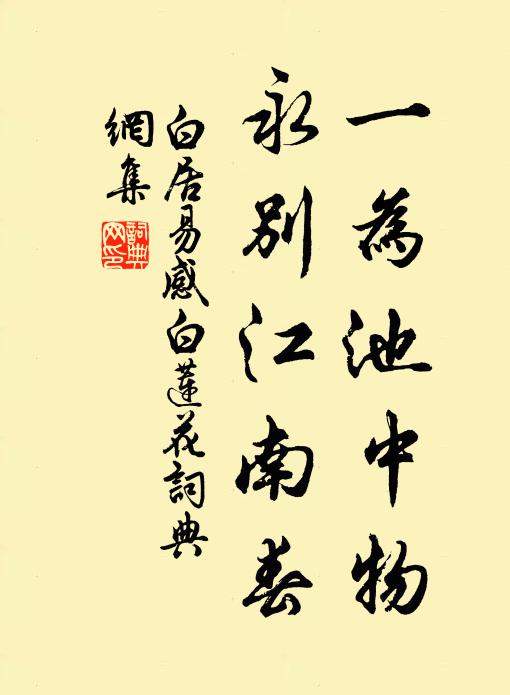 一為池中物
永別江南春
白居易感白蓮花詞典
網集
詞典
网印